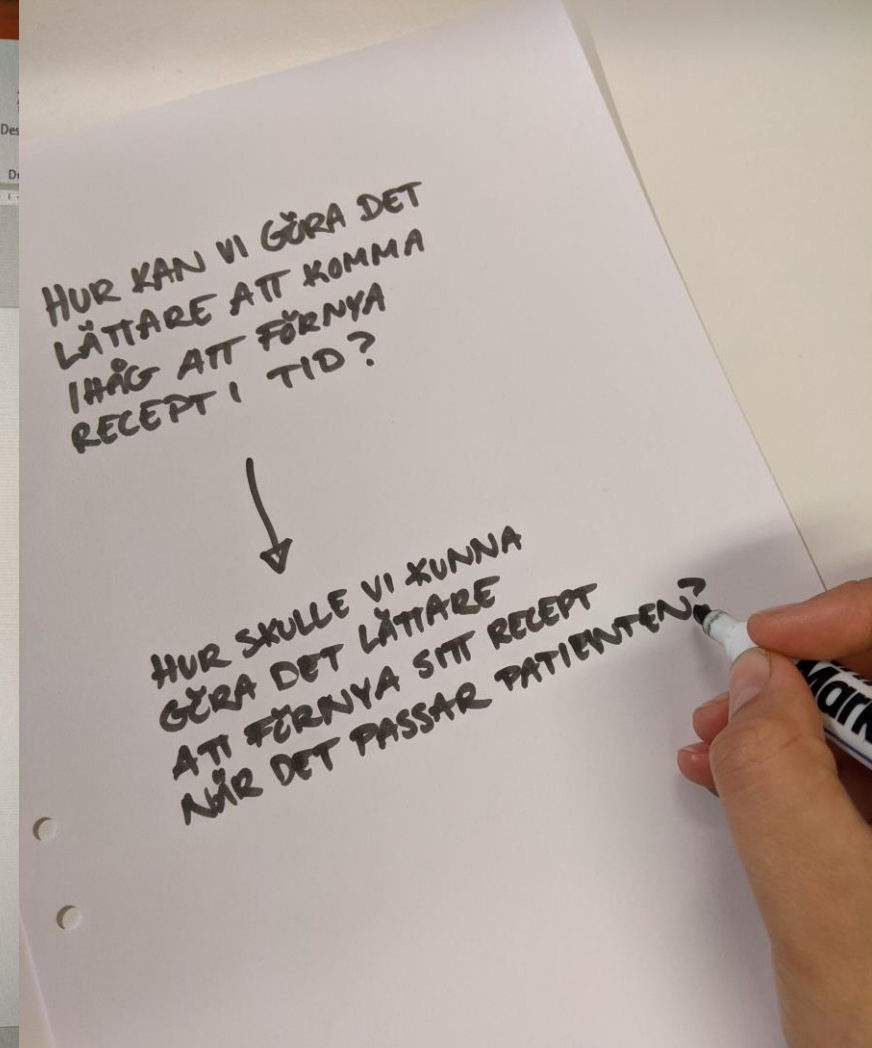 Des
HUR KAN VI GÖRA DET
LÄTTARE ATT KOMMA
IHÅG ATT FÖRNYA
RECEPT I TID?
HUR SKULLE VI KUNNA
GÖRA DET LÄTTARE
ATT FÖRNYA SITT RECEPT
NÄR DET PASSAR PATIENTEN?
Mark